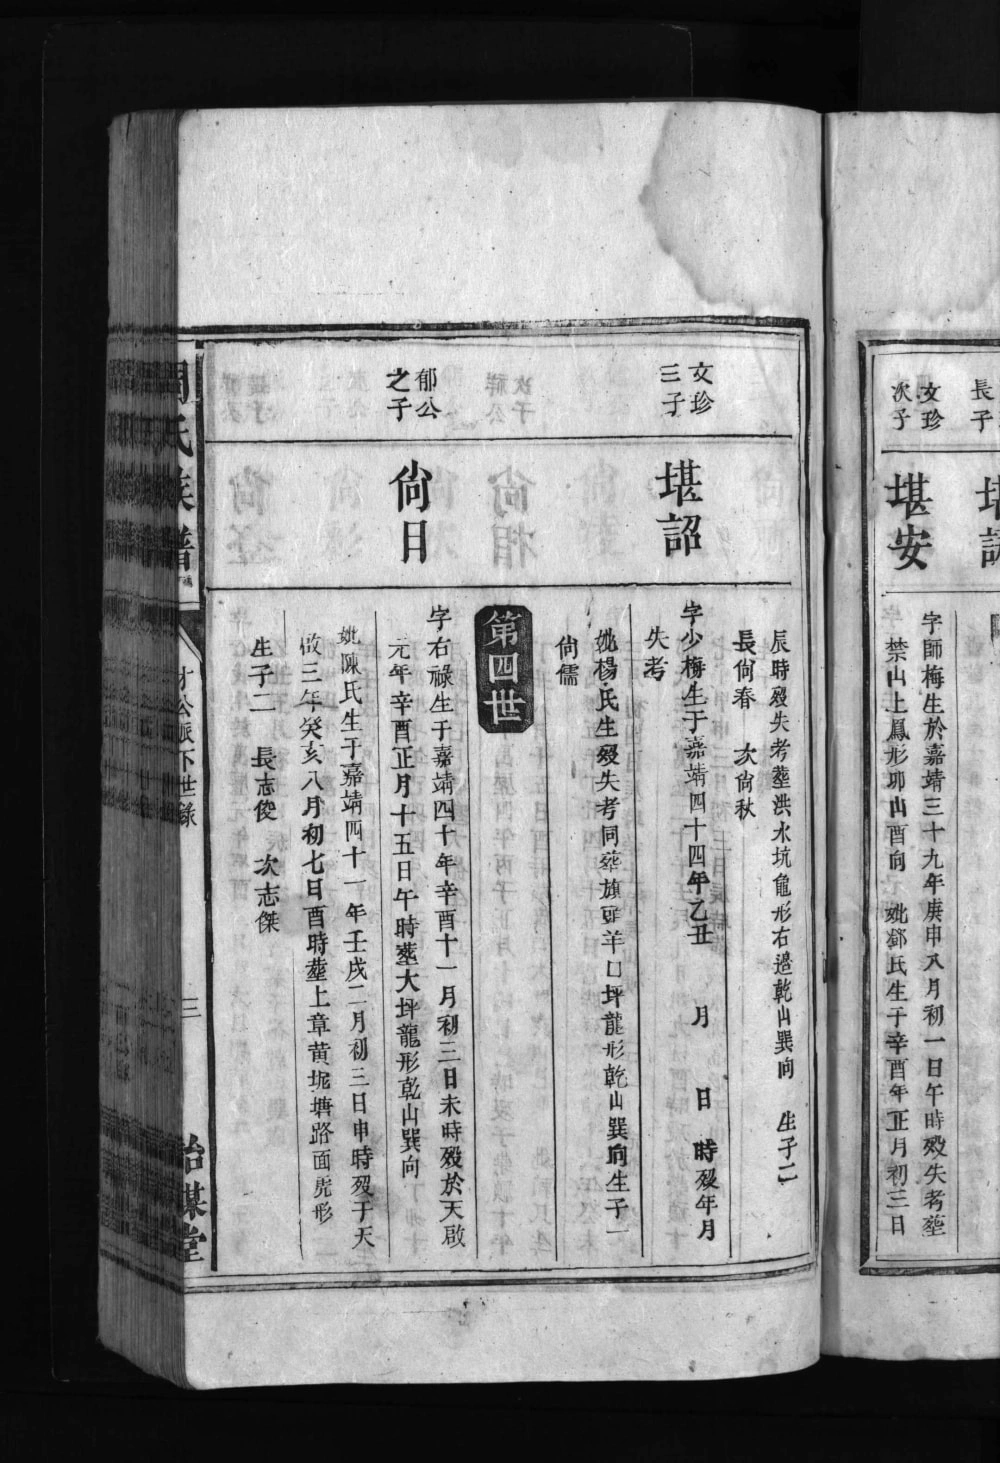 長子
堪
文珍
次子
堪安
字師梅生於嘉靖三十九年庚申八月初一日午時歿失考塟
禁山上鳳形卯山酉向　妣鄧氏生于辛酉年正月初三日
辰時歿失考塟洪水坑龜形右邉乾山巽向　生子二
長尙春　次尙秋
文珍
三子
堪詔
字少梅生于嘉靖四十四年乙丑　月　日　時歿年月
失考
妣楊氏生歿失考同塟旗頭羊口坪龍形乾山巽向生子一
尙儒
第四世
郁公
之子
尙日
字右祿生于嘉靖四十年辛酉十一月初三日未時歿於天啟
元年辛酉正月十五日午時塟大坪龍形乾山巽向
妣陳氏生于嘉靖四十一年壬戌二月初三日申時歿于天
啟三年癸亥八月初七日酉時塟上章黄坭塘路面虎形
生子二　長志俊　次志傑
周氏族譜
才公派下世錄
三
詒謀堂